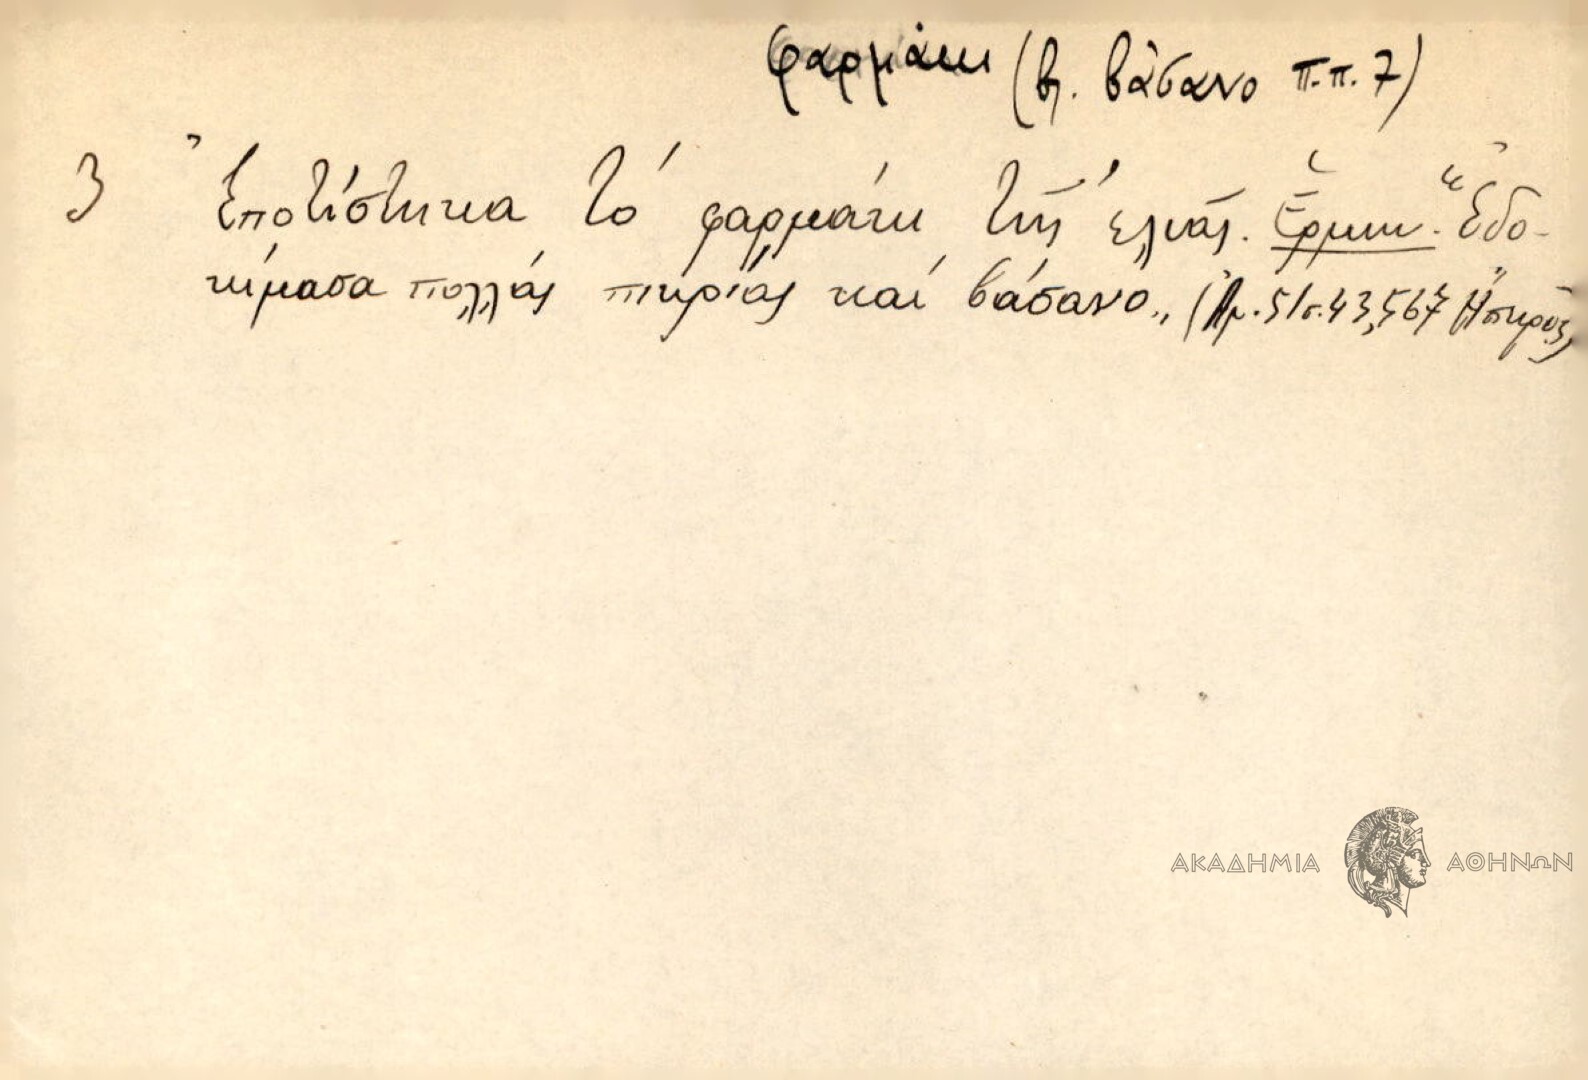 φαρμάκι (β. βάσανο π.π. 7)
3 Ἐποτίστηκα τό φαρμάκι τῆς ἐλιᾶς. Ἑρμην. "Ἐδο-
κίμασα πολλάς πικρίας καί βάσανο„ (Ἀρ. 51 σ. 43, 567 Ἤπειρος)
ΑΚΑΔΗΜΙΑ ΑΘΗΝΩΝ